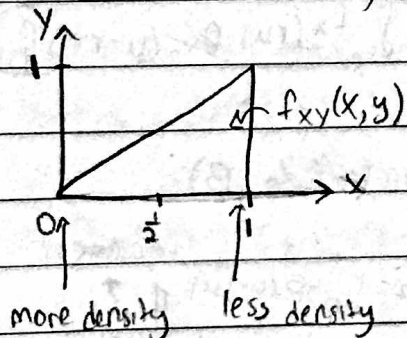 Y
1
f_{XY}(x,y)
X
0
1/2
1
more density
less density